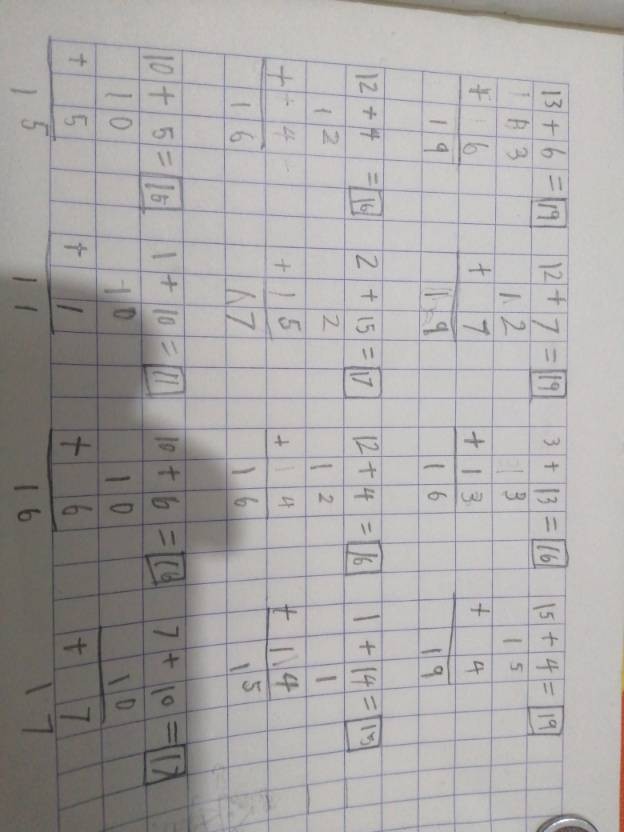 13 + 6 = 19 12 + 7 = 19 3 + 13 = 16 15 + 4 = 19
13 12 3 15
+ 6 + 7 + 13 + 4
19 19 16 19
12 + 4 = 16 2 + 15 = 17 12 + 4 = 16 1 + 14 = 15
12 2 12 1
+ 4 + 15 + 4 + 14
16 17 16 15
10 + 5 = 15 1 + 10 = 11 10 + 6 = 16 7 + 10 = 17
10 10 10 10
+ 5 + 1 + 6 + 7
15 11 16 17